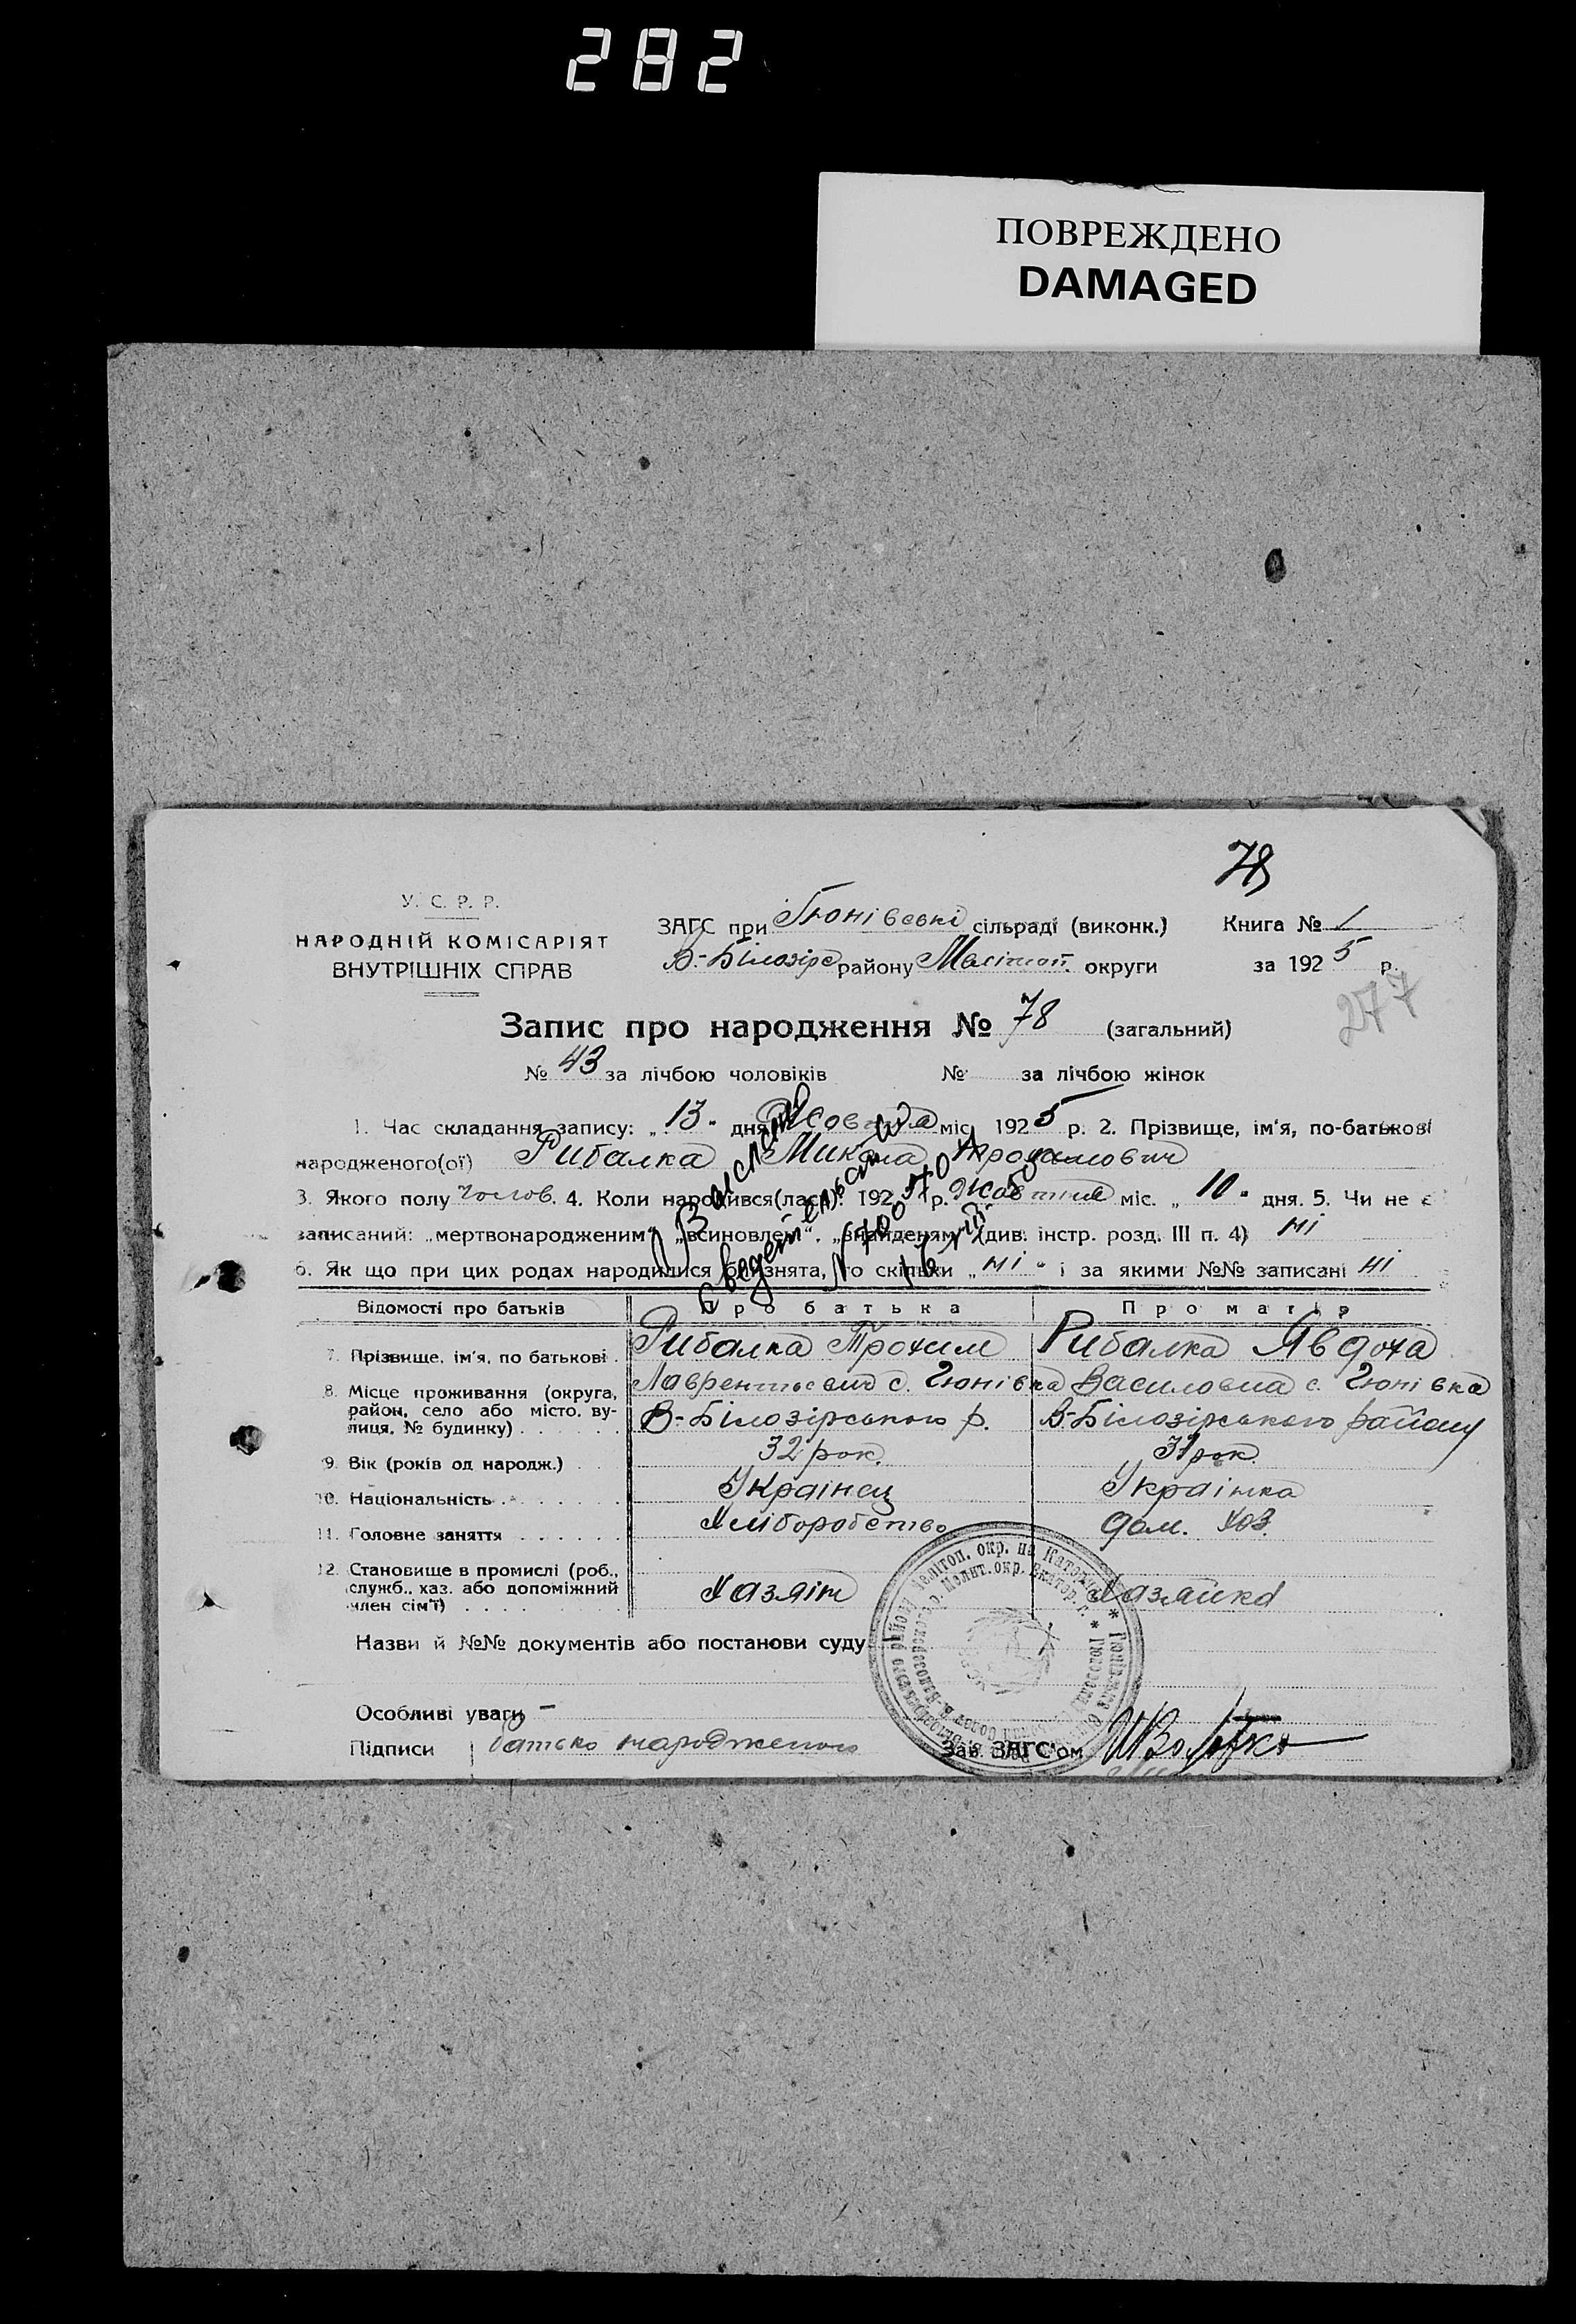 282
ПОВРЕЖДЕНО
DAMAGED
78
У. С. Р. Р.
НАРОДНІЙ КОМІСАРІЯТ
ВНУТРІШНІХ СПРАВ
ЗАГС при Гюнівські сільраді (виконк.) Книга № 1
В.-Білозірс району Мелітоп. округи за 1925 р.
277
Запис про народження № 78 (загальний)
№ 43 за лічбою чоловіків № за лічбою жінок
1. Час складання запису: „13" дня Жовтня міс. 1925 р. 2. Прізвище, ім'я, по-батькові
народженого(ої) Рибалка Микола Трохимович
3. Якого полу чолов. 4. Коли народився(лася): 1925 р. Жовтня міс. „10" дня. 5. Чи не є
записаний: „мертвонародженим", „всиновлен", „знайденям" (див. інстр. розд. III п. 4) ні
6. Як що при цих родах народилися близнята, то скільки „ні" і за якими №№ записані ні
Відомості про батьків Про батька Про матір
7. Прізвище, ім'я, по батькові . Рибалка Трохим Рибалка Явдоха
8. Місце проживання (округа, Лаврентьевич с. Гюнівка Василовна с. Гюнівка
район, село або місто, ву- В-Білозірського р. В-Білозірського району
лиця, № будинку) . . . . . .
9. Вік (років од народж.) . . 32 рок. 31 рок.
10. Національність . . . . . . . Українец Українка
11. Головне заняття . . . . . . Хліборобство дом. хоз.
12. Становище в промислі (роб.,
служб., хаз. або допоміжний Хазяін Хазяйка
член сім'ї) . . . .
Назви й №№ документів або постанови суду
Особливі уваги –
Підписи батько народженого Зав. ЗАГС'ом